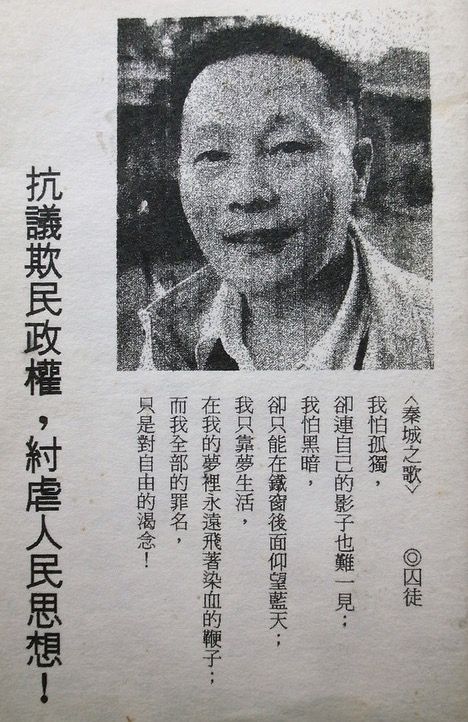 〈秦城之歌〉 ◎囚徒
我怕孤獨，
卻連自己的影子也難一見；
我怕黑暗，
卻只能在鐵窗後面仰望藍天；
我只靠夢生活，
在我的夢裡永遠飛著染血的鞭子；
而我全部的罪名，
只是對自由的渴念！
抗議欺民政權，紂虐人民思想！